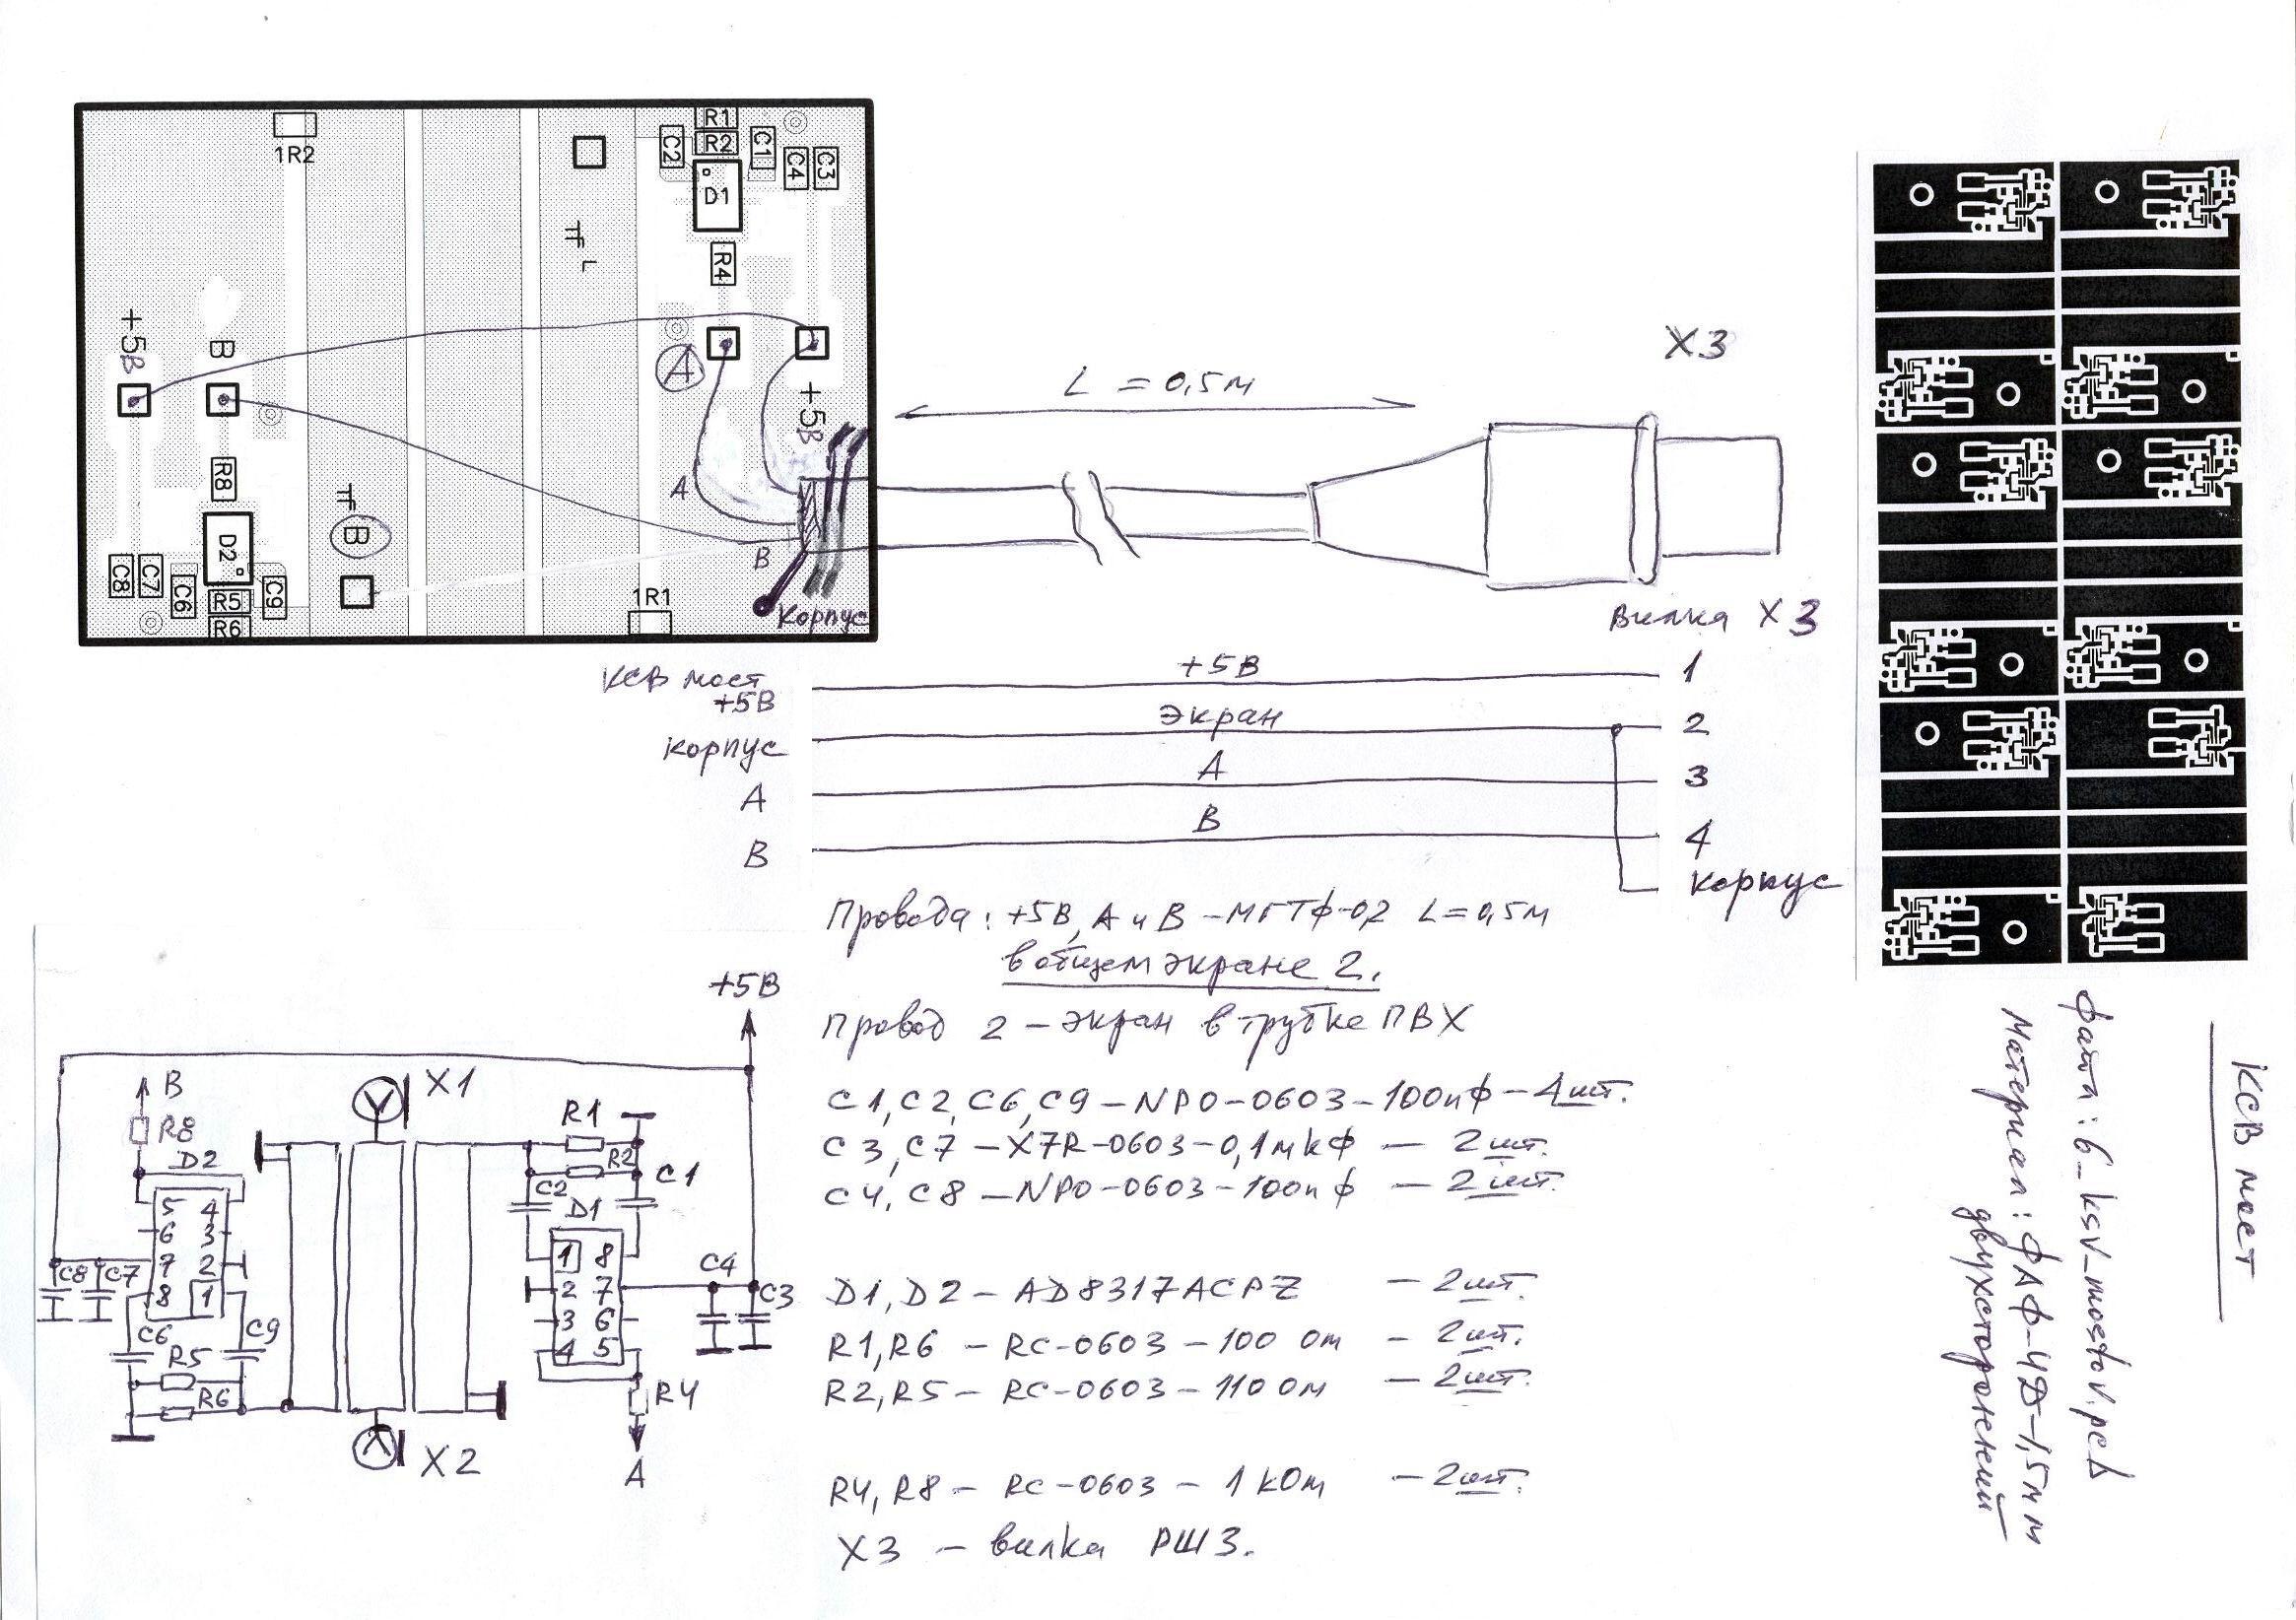 1R2
R1
R2
C2
C1
C4
C3
D1
R4
+5В
B
A
+5В
R8
D2
C8
C7
C6
R5
R6
C9
B
1R1
A
В
Корпус
L = 0,5м
X3
Вилка X3
КСВ мост
+5В
+5В
1
Корпус
Экран
2
А
А
3
В
В
4
Корпус
Провода: +5В, А и В – МГТФ-0,2 L=0,5м
в общем экране 2.
Провод 2 – экран в трубке ПВХ
C1, C2, C6, C9 – NPO-0603-100пф – 4шт.
C3, C7 – X7R-0603-0,1мкФ – 2шт.
C4, C8 – NPO-0603-100пф – 2шт.
D1, D2 – AD8317ACPZ – 2шт.
R1, R6 – RC-0603 – 100 Ом – 2шт.
R2, R5 – RC-0603 – 110 Ом – 2шт.
R4, R8 – RC-0603 – 1 кОм – 2шт.
X3 – вилка РШ3.
+5В
В
R8
D2
5 4
6 3
7 2
8 1
C8
C7
C6
C9
R5
R6
X1
X2
R1
R2
C2
C1
D1
1 8
2 7
3 6
4 5
C4
C3
R4
А
КСВ мост
Файл: 6_ksv_mostov.pcb
Материал: ФАФ-4Д-1,5мм
двухсторонний